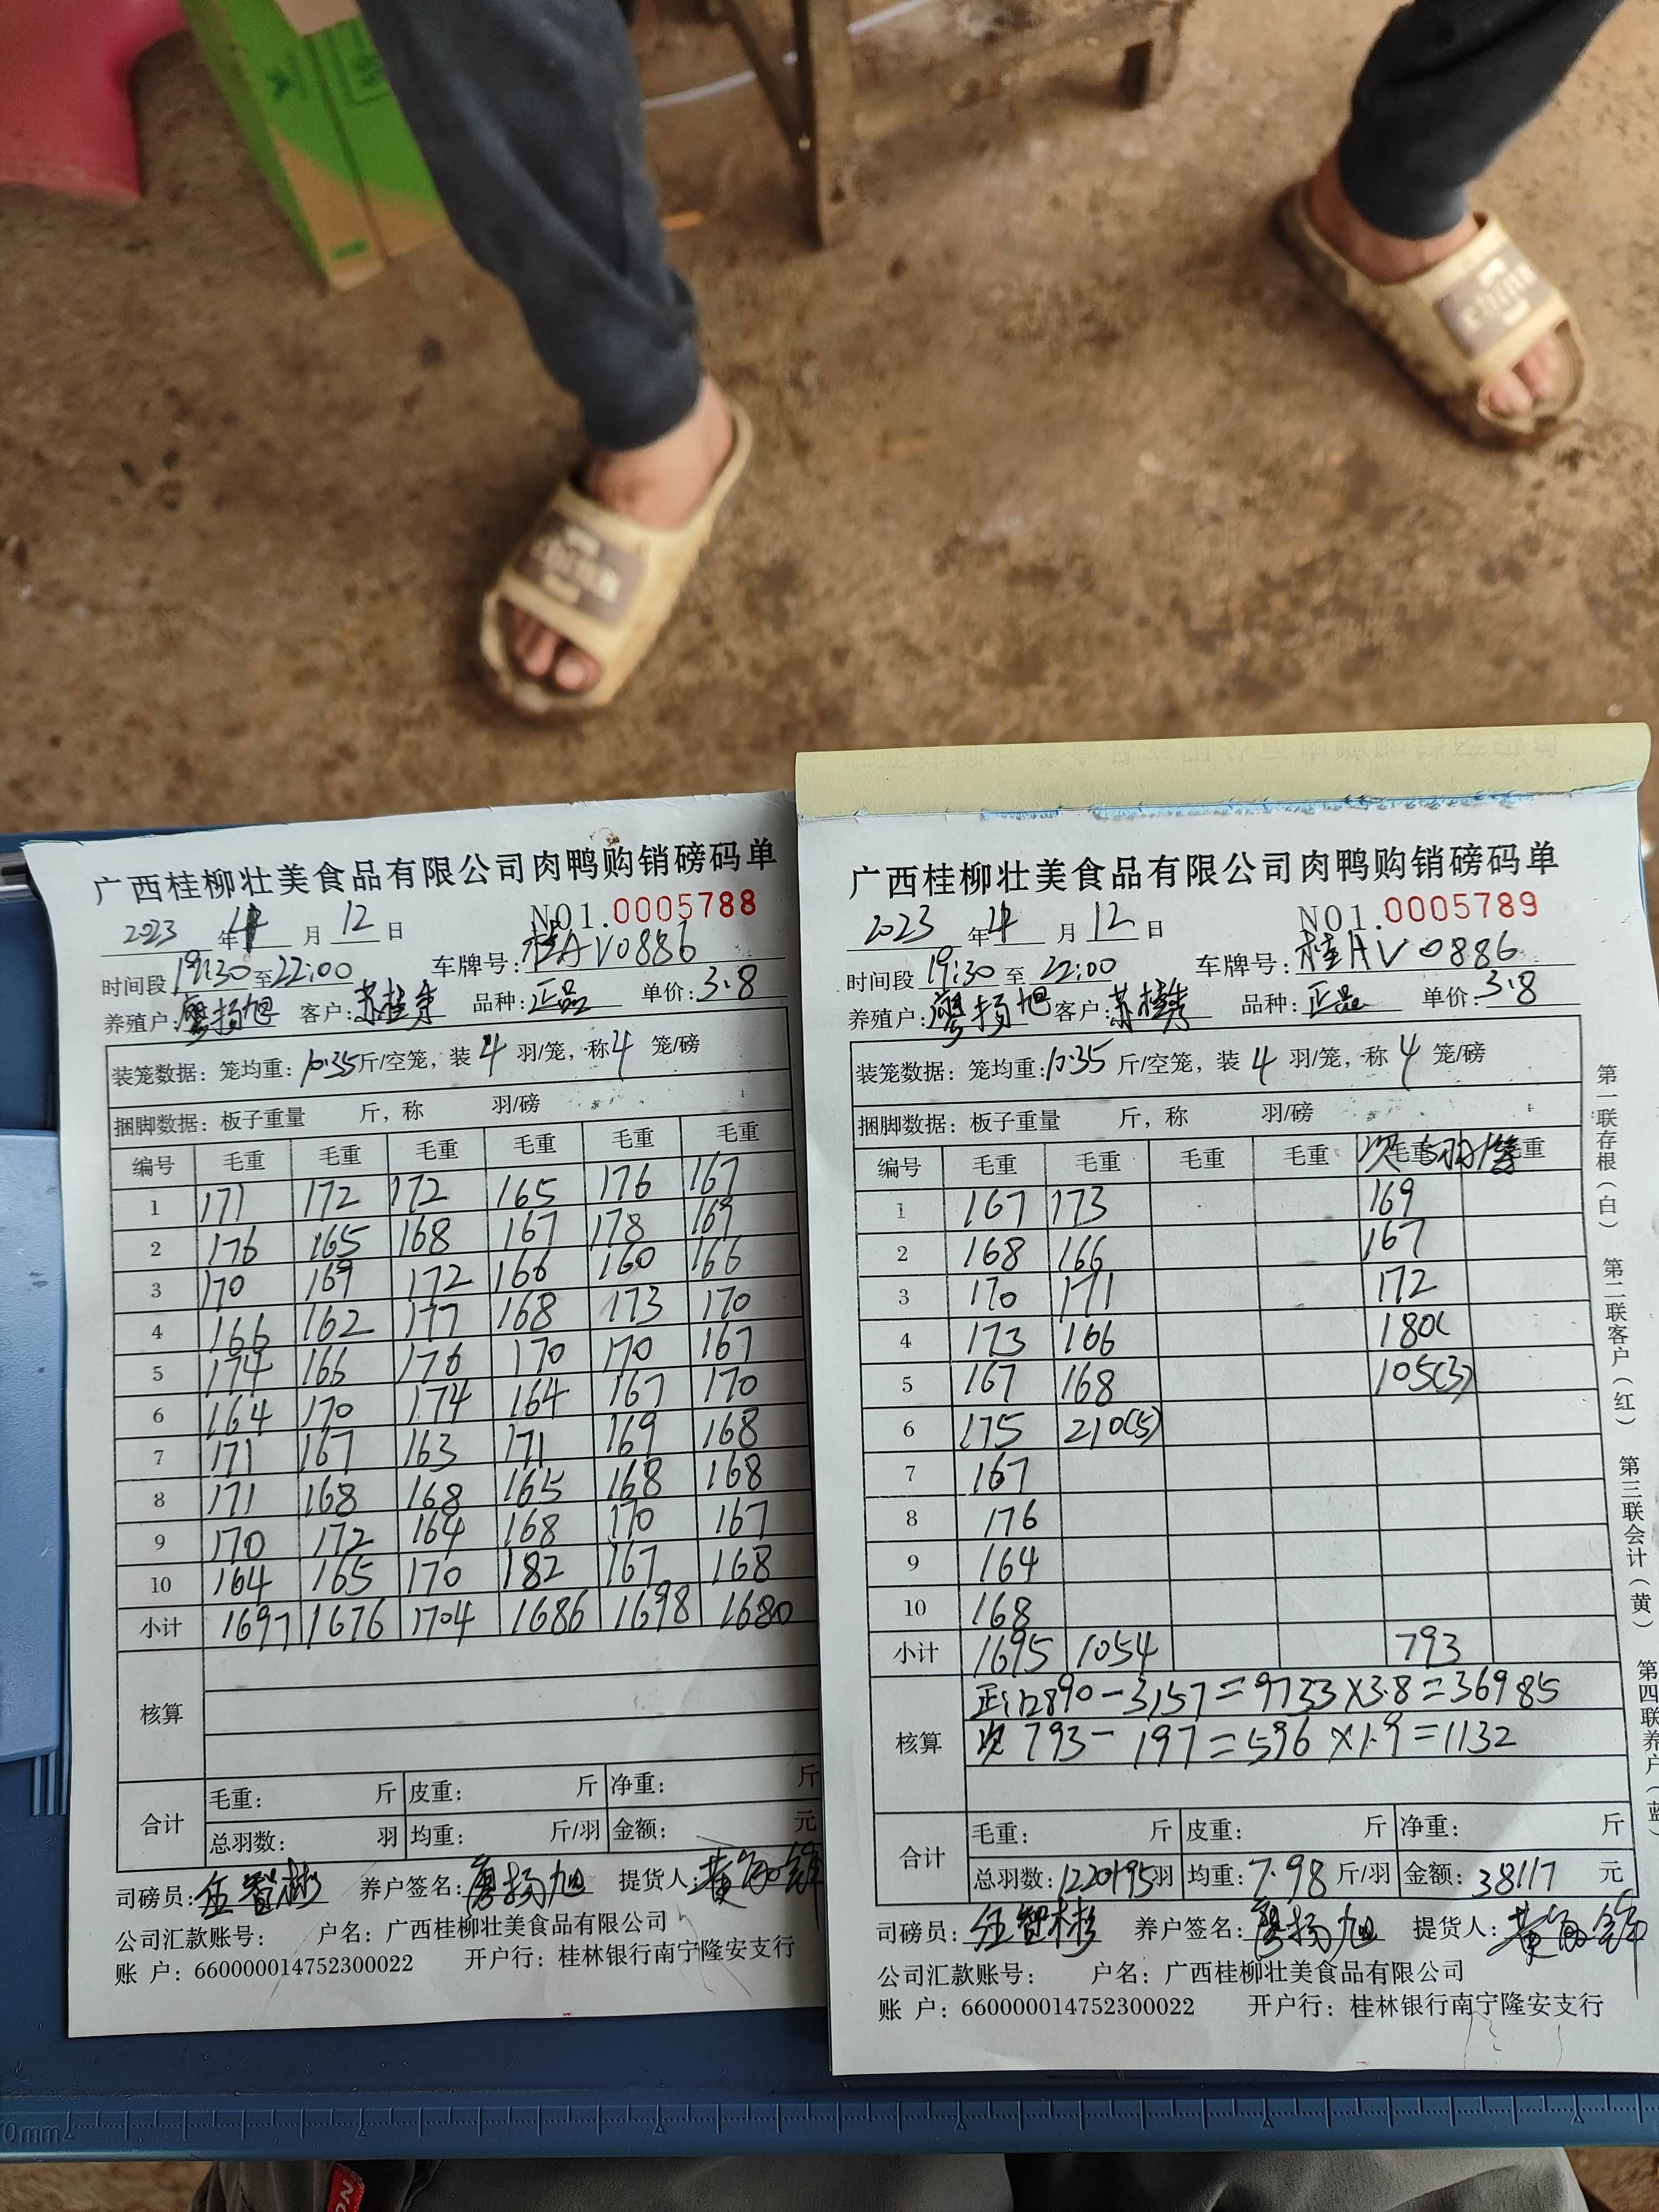 广西桂柳壮美食品有限公司肉鸭购销磅码单
NO1.0005788
2023 年 4 月 12 日
时间段 19:30 至 22:00 车牌号: 桂AV0886
养殖户: 廖扬旭 客户: 苏桂 品种: 正品 单价: 3.8
装笼数据: 笼均重: 10.35 斤/空笼, 装 4 羽/笼, 称 4 笼/磅
捆脚数据: 板子重量 斤, 称 羽/磅
编号 毛重 毛重 毛重 毛重 毛重 毛重
1 171 172 172 165 176 167
2 176 165 168 167 178 169
3 170 169 172 166 160 166
4 166 162 177 168 173 170
5 174 166 176 170 170 167
6 164 170 174 164 167 170
7 171 167 163 171 169 168
8 171 168 168 165 168 168
9 170 172 164 168 170 167
10 164 165 170 182 167 168
小计 1697 1676 1704 1686 1698 1680
核算
合计 毛重: 斤 皮重: 斤 净重: 斤
总羽数: 羽 均重: 斤/羽 金额: 元
司磅员: 伍智彬 养户签名: 廖扬旭 提货人: 黄
公司汇款账号: 户名: 广西桂柳壮美食品有限公司
账 户: 660000014752300022 开户行: 桂林银行南宁隆安支行
广西桂柳壮美食品有限公司肉鸭购销磅码单
NO1.0005789
2023 年 4 月 12 日
时间段 19:30 至 22:00 车牌号: 桂AV0886
养殖户: 廖扬旭 客户: 苏桂 品种: 正品 单价: 3.8
装笼数据: 笼均重: 10.35 斤/空笼, 装 4 羽/笼, 称 4 笼/磅
捆脚数据: 板子重量 斤, 称 羽/磅
编号 毛重 毛重 毛重 毛重 次 毛重 毛重
1 167 173 169
2 168 166 167
3 170 171 172
4 173 166 180
5 167 168 105(3)
6 175 210(5)
7 167
8 176
9 164
10 168
小计 1695 1054 793
核算 正: 12890-3157=9733×3.8=36985
次 793-197=596×1.9=1132
合计 毛重: 斤 皮重: 斤 净重: 斤
总羽数: 1220 195 羽 均重: 7.98 斤/羽 金额: 38117 元
司磅员: 伍智彬 养户签名: 廖扬旭 提货人: 黄
公司汇款账号: 户名: 广西桂柳壮美食品有限公司
账 户: 660000014752300022 开户行: 桂林银行南宁隆安支行
第一联存根(白) 第二联客户(红) 第三联会计(黄) 第四联养户(蓝)
0mm